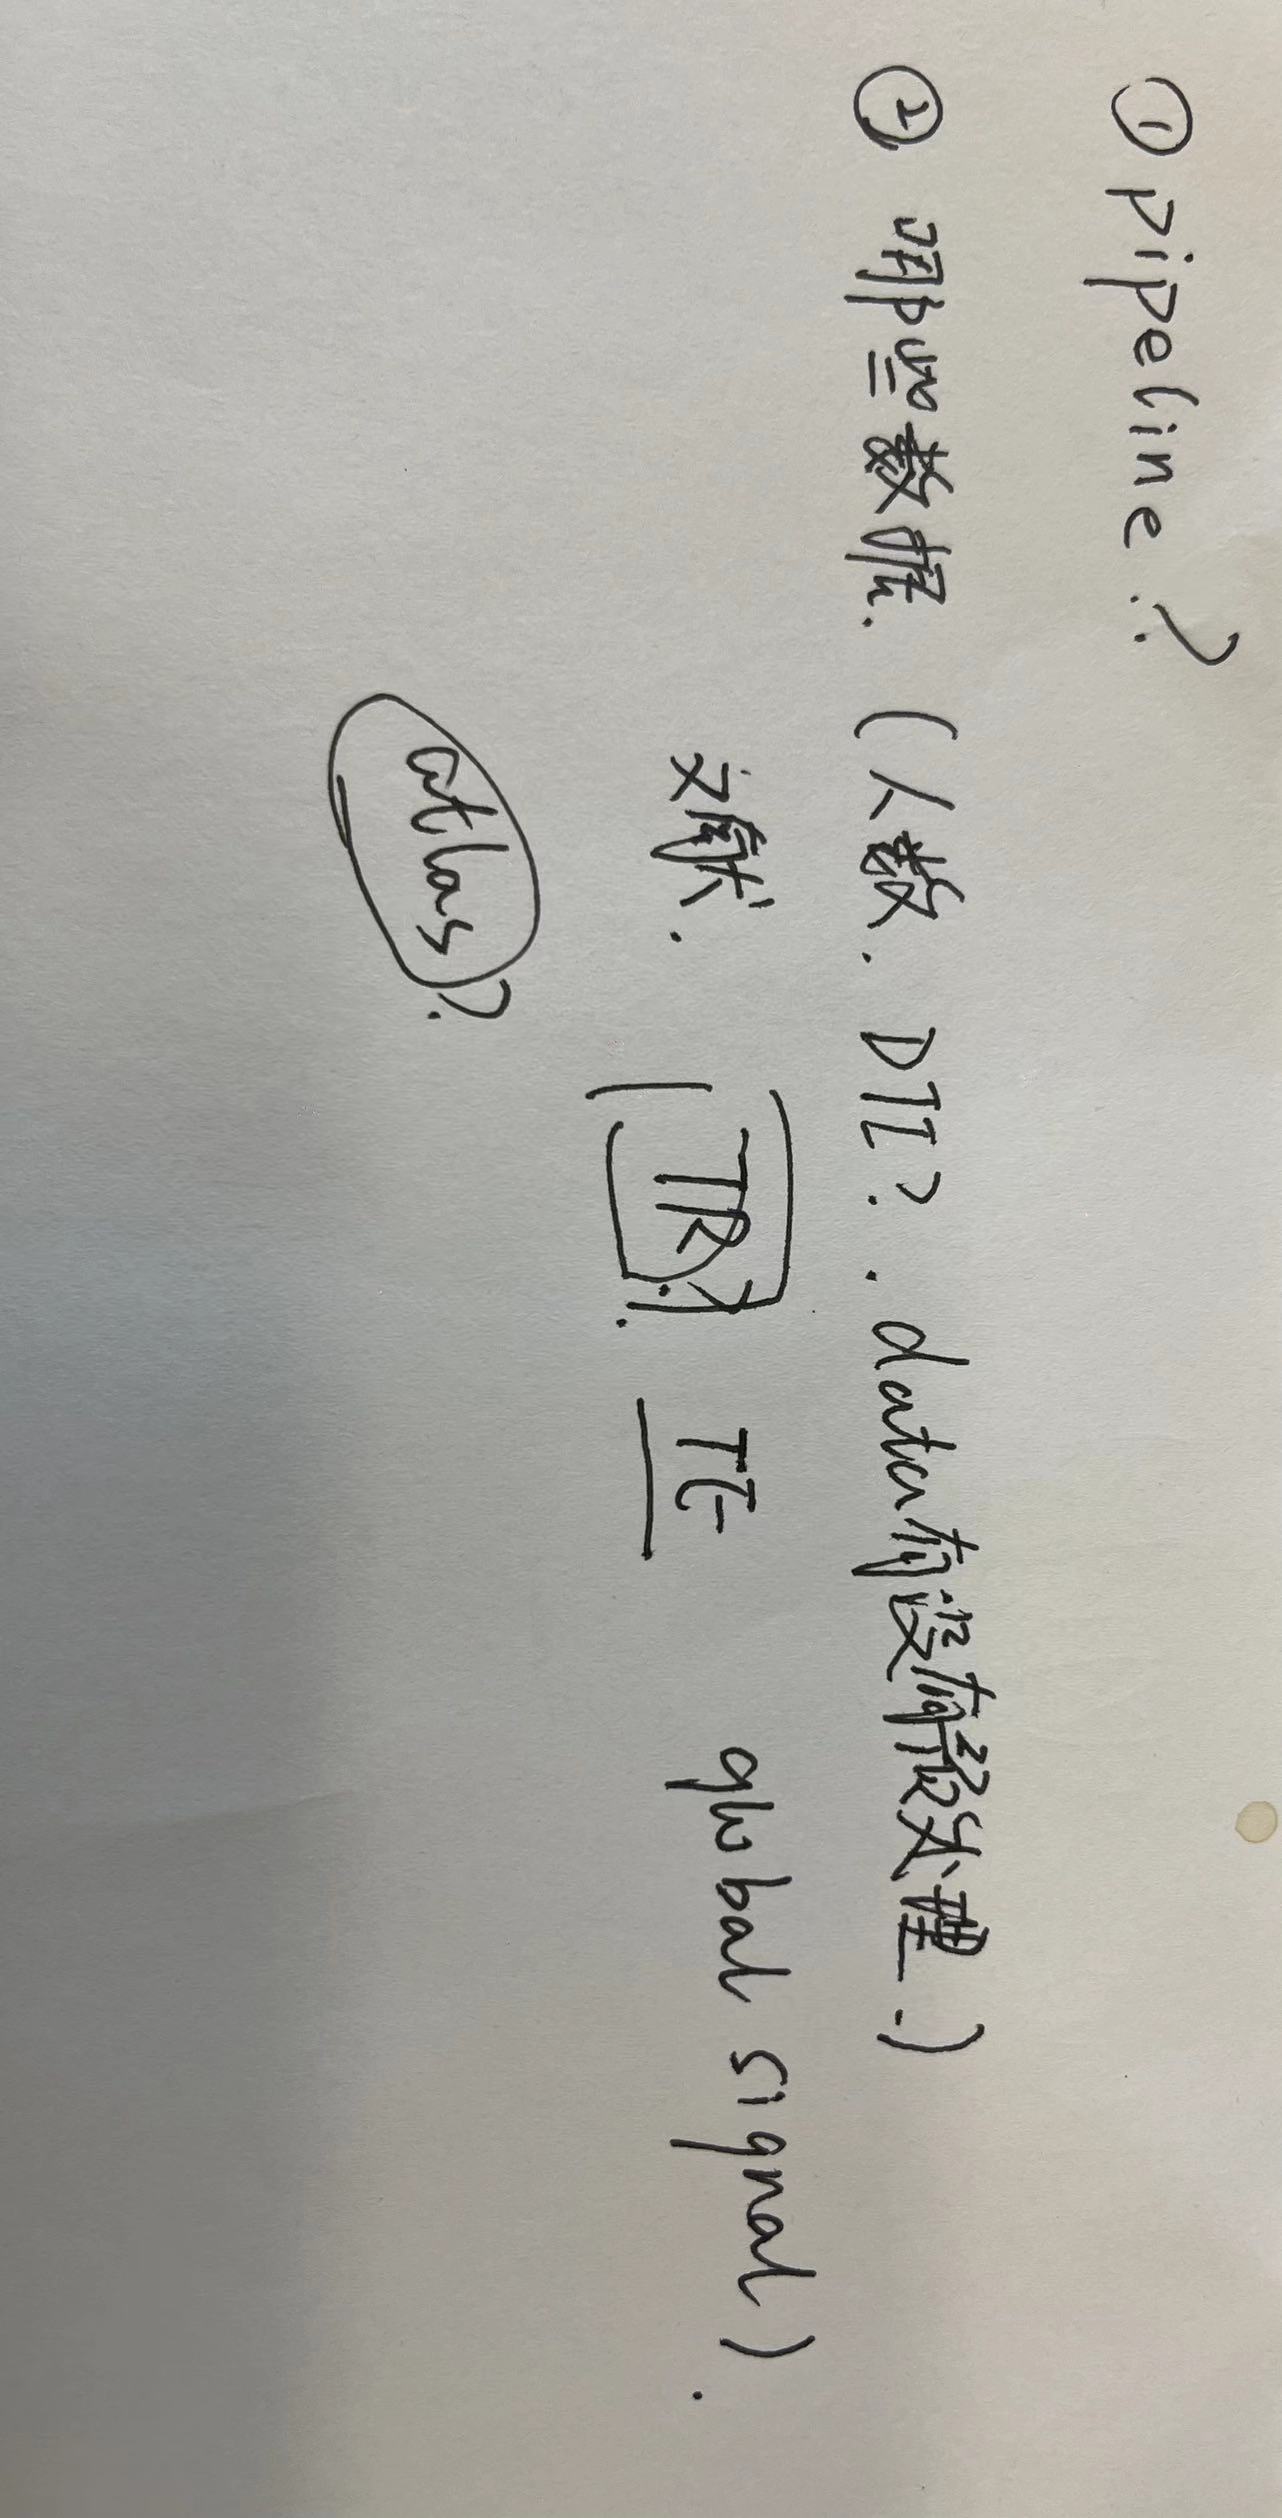 ① pipeline?
② 哪些数据. (人数. DTI?. data有没有预处理.)
文献. (TR?. TE global signal).
atlas?.